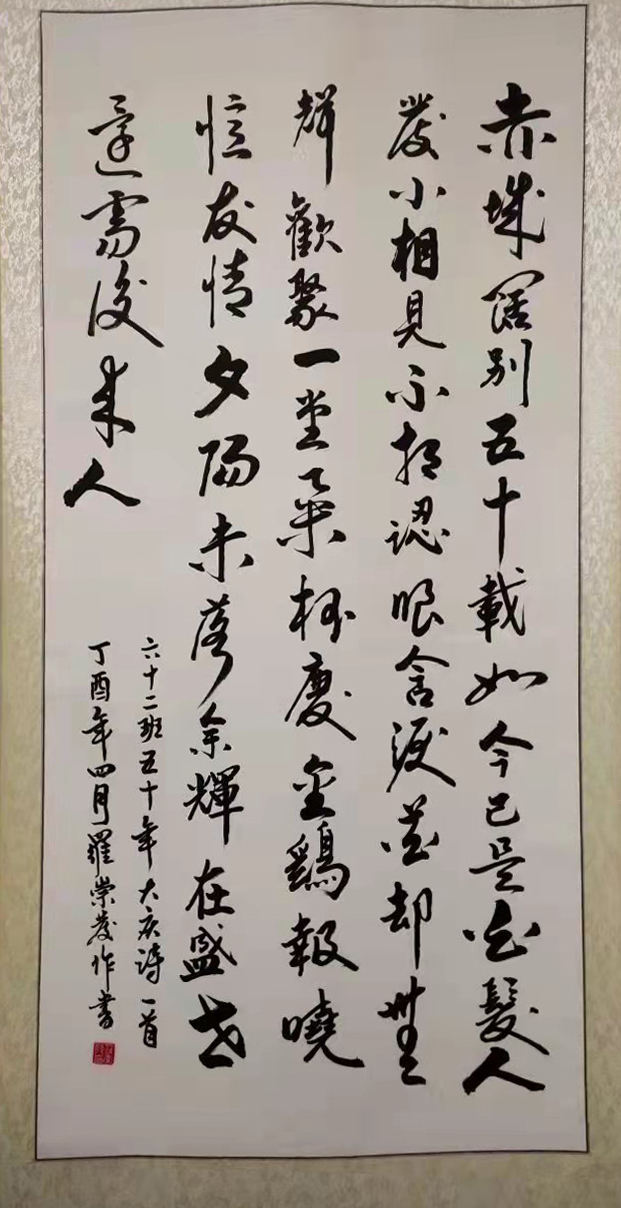 赤城闊别五十載如今已是白髮人
發小相見不相認眼含淚花却無
聲歡聚一堂舉杯慶金鷄報曉
憶友情夕陽未落余輝在盛世
還需後來人
六十二班五十年大庆詩一首
丁酉年四月羅崇發作書